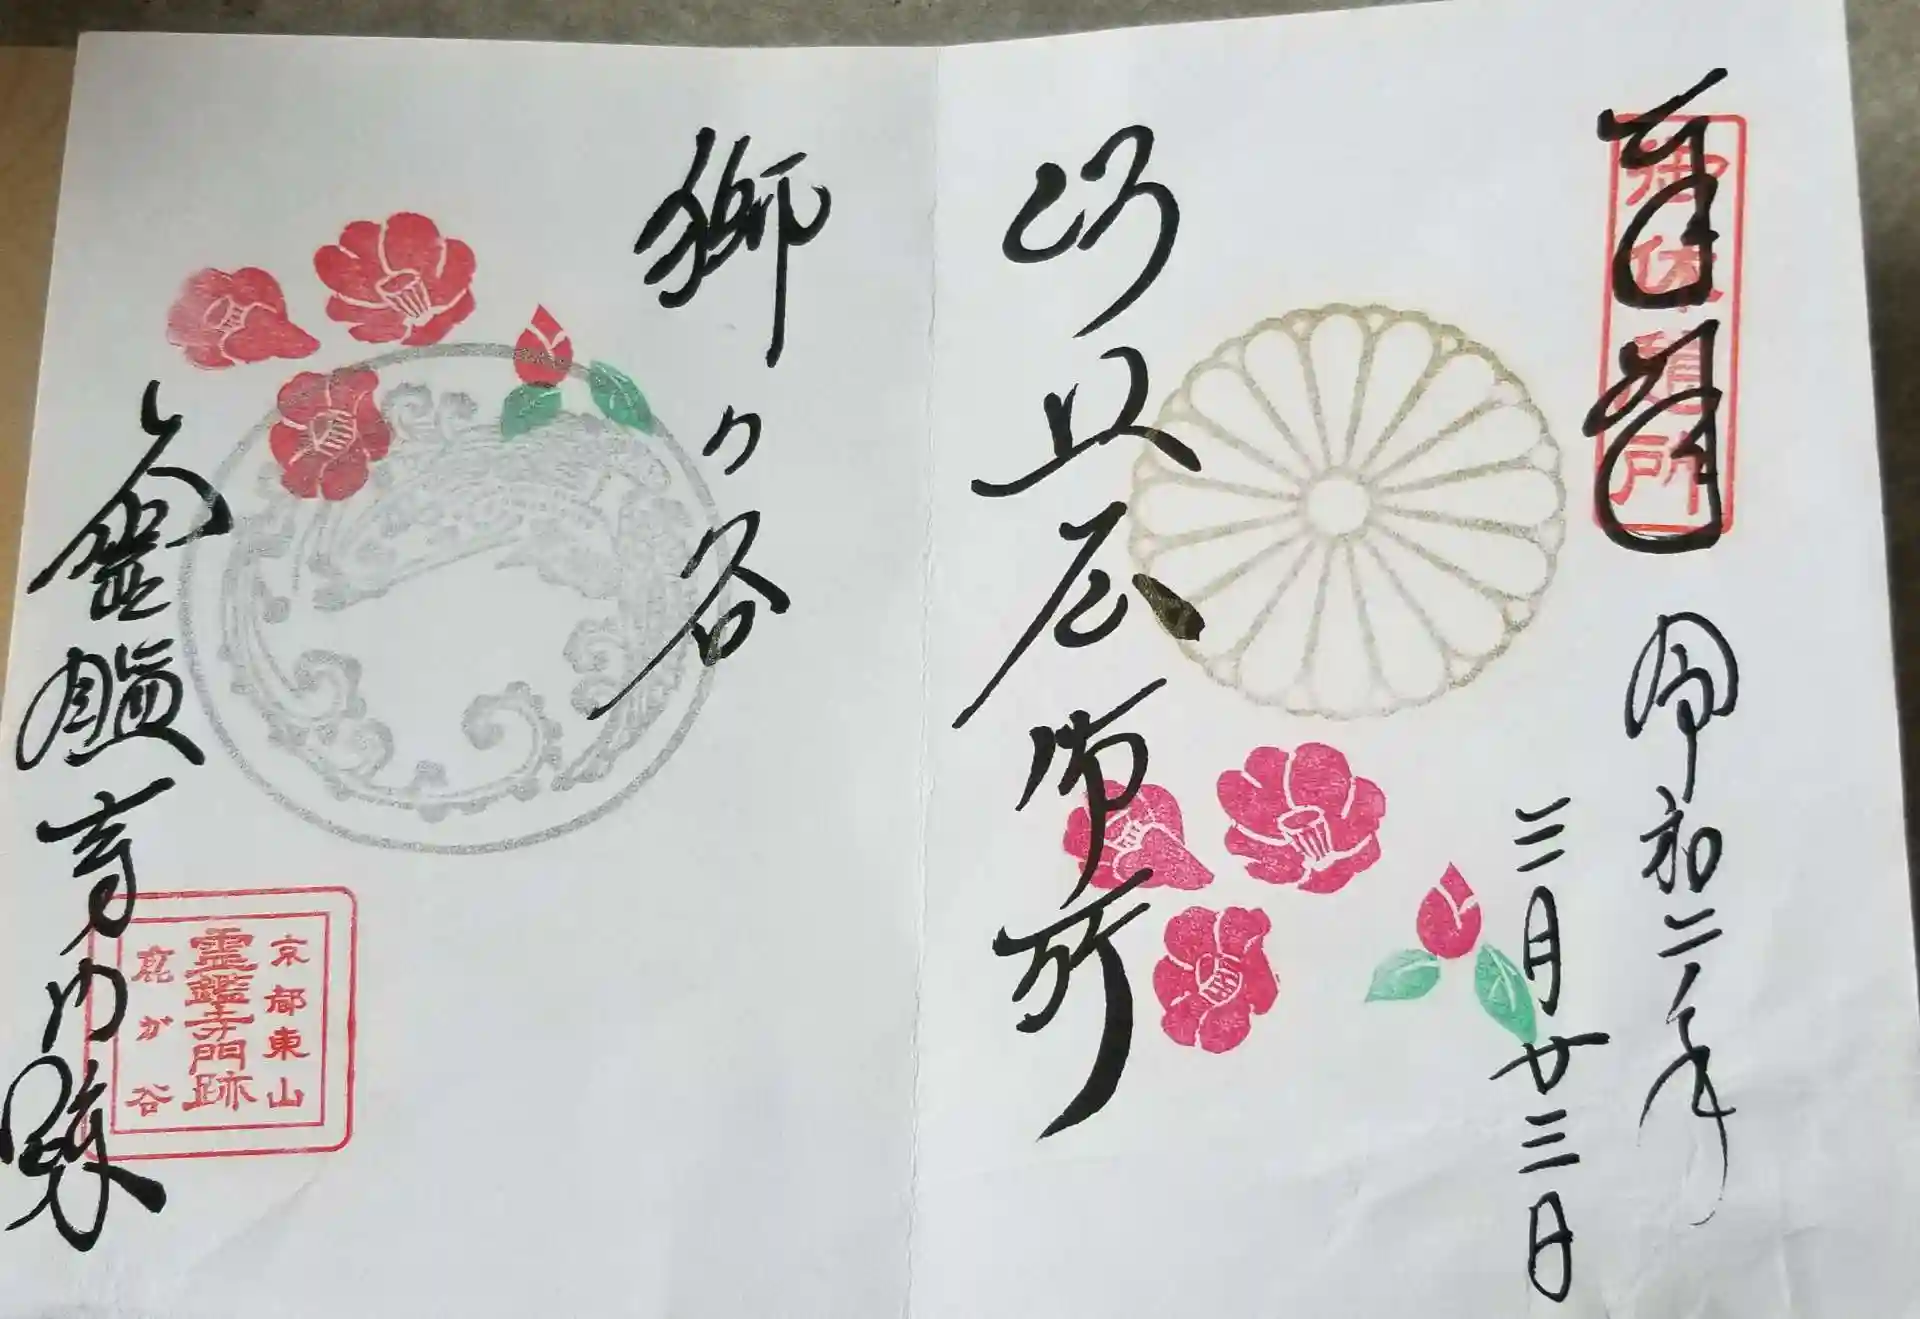 奉拝
令和二年
三月廿三日
比丘尼御所
獅ヶ谷
靈鑑寺門跡
京都東山
霊鑑寺門跡
鹿か谷